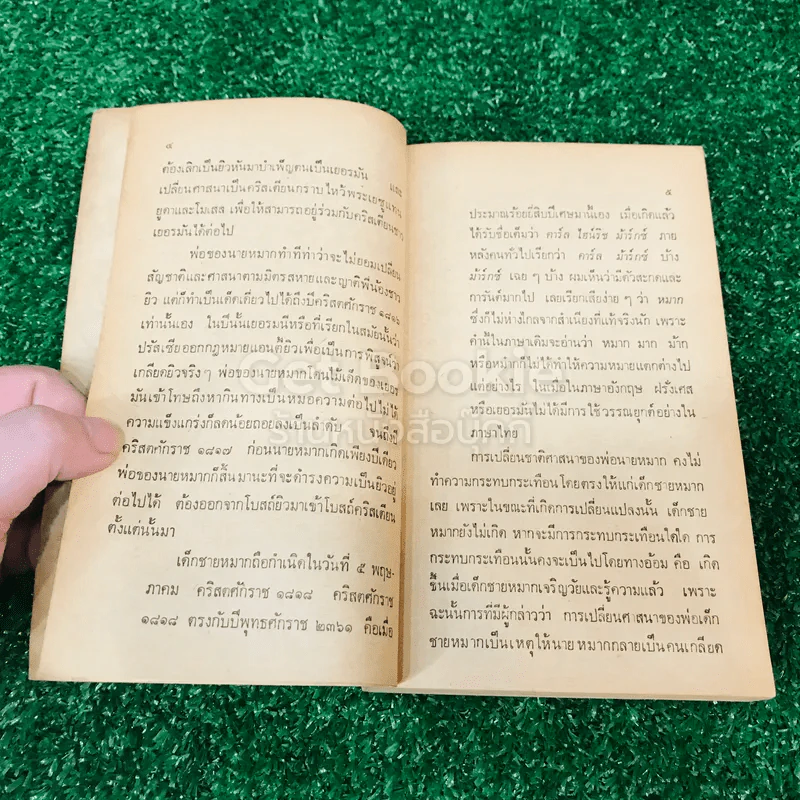 ๔
ต้องเลิกเป็นยิวหันมาบำเพ็ญตนเป็นเยอรมัน และ
เปลี่ยนศาสนาเป็นคริสเตียนกราบไหว้พระเยซูแทน
ยูดาและโมเสส เพื่อให้สามารถอยู่ร่วมกับคริสเตียนชาว
เยอรมันได้ต่อไป
พ่อของนายหมากทำทีท่าว่าจะไม่ยอมเปลี่ยน
สัญชาติและศาสนาตามมิตรสหายและญาติพี่น้องชาว
ยิว แต่ก็ทำเป็นเด็ดเดี่ยวไปได้ถึงปีคริสตศักราช ๑๘๑๖
เท่านั้นเอง ในปีนั้นเยอรมนีหรือที่เรียกในสมัยนั้นว่า
ปรัสเซียออกกฎหมายแอนตี้ยิวเพื่อเป็นการพิสูจน์ว่า
เกลียดยิวจริงๆ พ่อของนายหมากโดนไม้เด็ดของเยอร
มันเข้าโทษถึงหากินทางเป็นหมอความต่อไปไม่ได้
ความแข็งแกร่งก็ลดน้อยถอยลงเป็นลำดับ จนถึงปี
คริสตศักราช ๑๘๑๗ ก่อนนายหมากเกิดเพียงปีเดียว
พ่อของนายหมากก็สิ้นมานะที่จะดำรงความเป็นยิวอยู่
ต่อไปได้ ต้องออกจากโบสถ์ยิวมาเข้าโบสถ์คริสเตียน
ตั้งแต่นั้นมา
เด็กชายหมากถือกำเนิดในวันที่ ๕ พฤษ-
ภาคม คริสตศักราช ๑๘๑๘ คริสตศักราช
๑๘๑๘ ตรงกับปีพุทธศักราช ๒๓๖๑ คือเมื่อ
๕
ประมาณร้อยยี่สิบปีเศษมานี้เอง เมื่อเกิดแล้ว
ได้รับชื่อเต็มว่า คาร์ล ไฮน์ริช ม้าร์กซ์ ภาย
หลังคนทั่วไปเรียกว่า คาร์ล ม้าร์กซ์ บ้าง
ม้าร์กซ์ เฉย ๆ บ้าง ผมเห็นว่ามีตัวสะกดและ
การันต์มากไป เลยเรียกเสียง่าย ๆ ว่า หมาก
ซึ่งก็ไม่ห่างไกลจากสำเนียงที่แท้จริงนัก เพราะ
คำนี้ในภาษาเดิมจะอ่านว่า หมาก มาก ม้าก
หรือหมากก็ไม่ได้ทำให้ความหมายแตกต่างไป
แต่อย่างไร ในเมื่อในภาษาอังกฤษ ฝรั่งเศส
หรือเยอรมันไม่ได้มีการใช้วรรณยุกต์อย่างใน
ภาษาไทย
การเปลี่ยนชาติศาสนาของพ่อนายหมาก คงไม่
ทำความกระทบกระเทือนโดยตรงให้แก่เด็กชายหมาก
เลย เพราะในขณะที่เกิดการเปลี่ยนแปลงนั้น เด็กชาย
หมากยังไม่เกิด หากจะมีการกระทบกระเทือนใดใด การ
กระทบกระเทือนนั้นคงจะเป็นไปโดยทางอ้อม คือ เกิด
ขึ้นเมื่อเด็กชายหมากเจริญวัยและรู้ความแล้ว เพราะ
ฉะนั้นการที่มีผู้กล่าวว่า การเปลี่ยนศาสนาของพ่อเด็ก
ชายหมากเป็นเหตุให้นายหมากกลายเป็นคนเกลียด